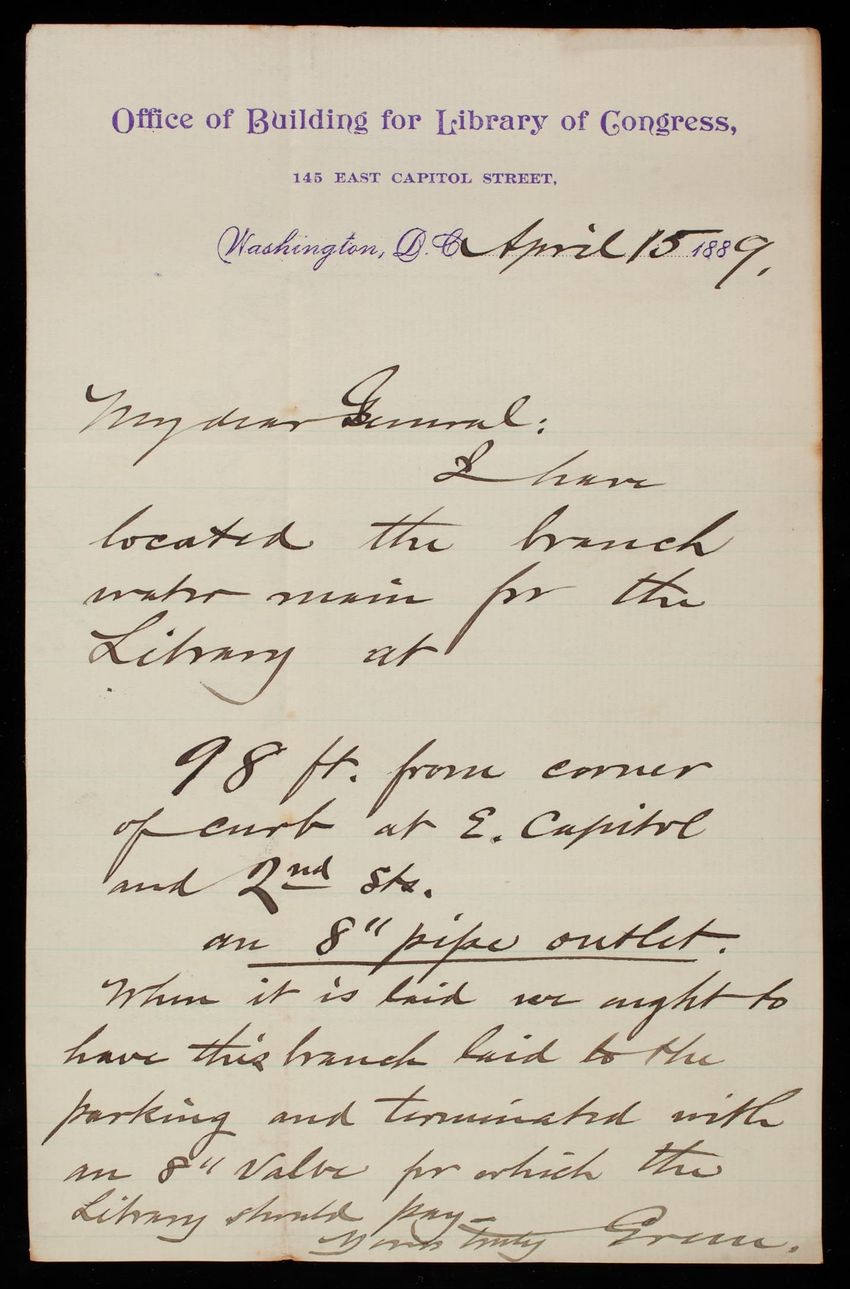 Office of Building for Library of Congress,
145 EAST CAPITOL STREET,
Washington, D.C. April 15 1889.
My dear General:
I have
located the branch
water main for the
Library at
98 ft. from corner
of curb at E. Capitol
and 2nd Sts.
an 8" pipe outlet.
When it is laid we ought to
have this branch laid to the
parking and terminated with
an 8" Valve for which the
Library should pay—
Yours truly Green.